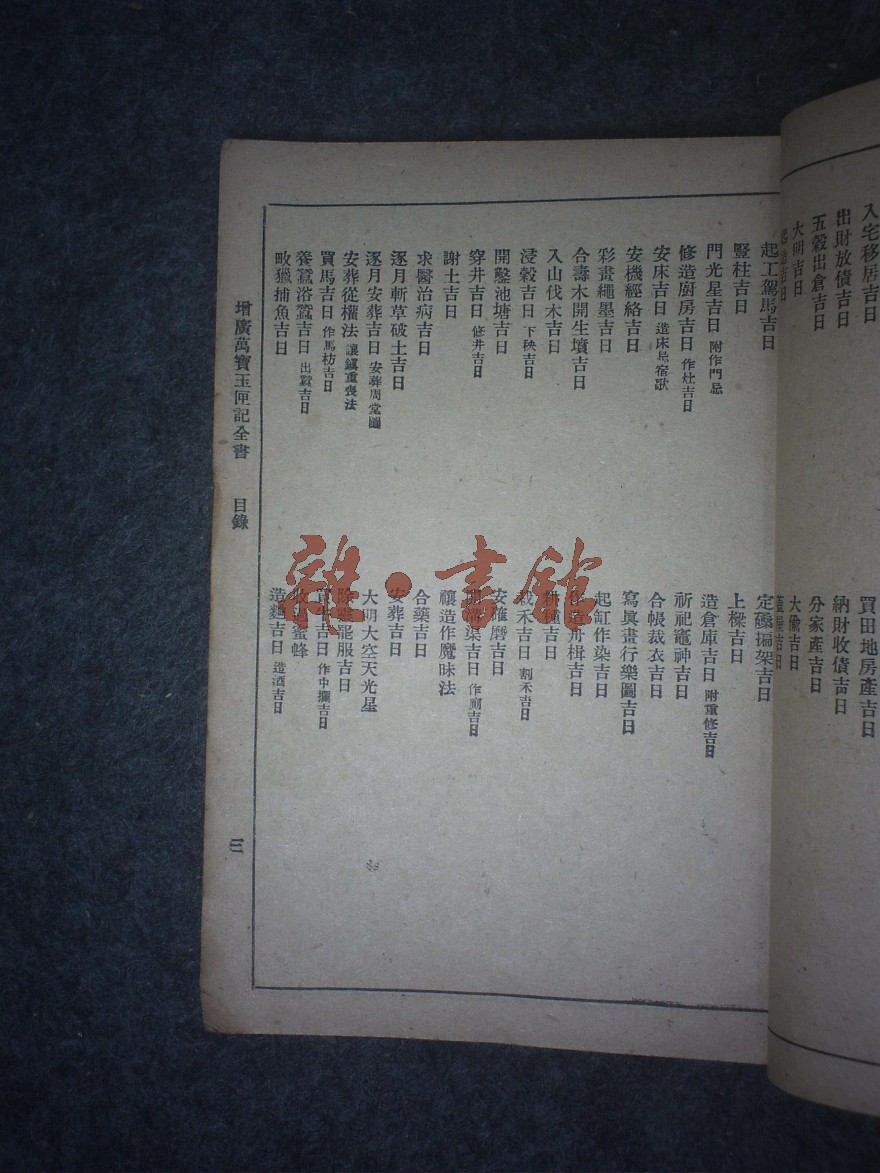 入宅移居吉日
出財放債吉日
五穀出倉吉日
大明吉日
買田地房產吉日
納財收債吉日
分家產吉日
大偷吉日
起工駕馬吉日
豎柱吉日
門光星吉日 附作門忌
修造廚房吉日 作灶吉日
安床吉日 造床忌宿歌
安機經絡吉日
彩畫繩墨吉日
合壽木開生墳吉日
入山伐木吉日
浸穀吉日 下秧吉日
開鑿池塘吉日
穿井吉日 修井吉日
謝土吉日
求醫治病吉日
逐月斬草破土吉日
逐月安葬吉日 安葬周堂圖
安葬從權法 讓鎮重喪法
買馬吉日 作馬枋吉日
養蠶浴蠶吉日 出蠶吉日
畋獵捕魚吉日
定磉搧架吉日
上樑吉日
造倉庫吉日 附重修吉日
祈祀竈神吉日
合帳裁衣吉日
寫眞畫行樂圖吉日
起缸作染吉日
作造舟楫吉日
耕種吉日
栽禾吉日 割禾吉日
安碓磨吉日
開溝渠吉日 作廁吉日
禳造作魔昧法
合藥吉日
安葬吉日
大明大空天光星
除靈罷服吉日
買牛吉日 作牛攔吉日
收割蜜蜂
造麵吉日 造酒吉日
增廣萬寶玉匣記全書 目錄
三
雜·書館